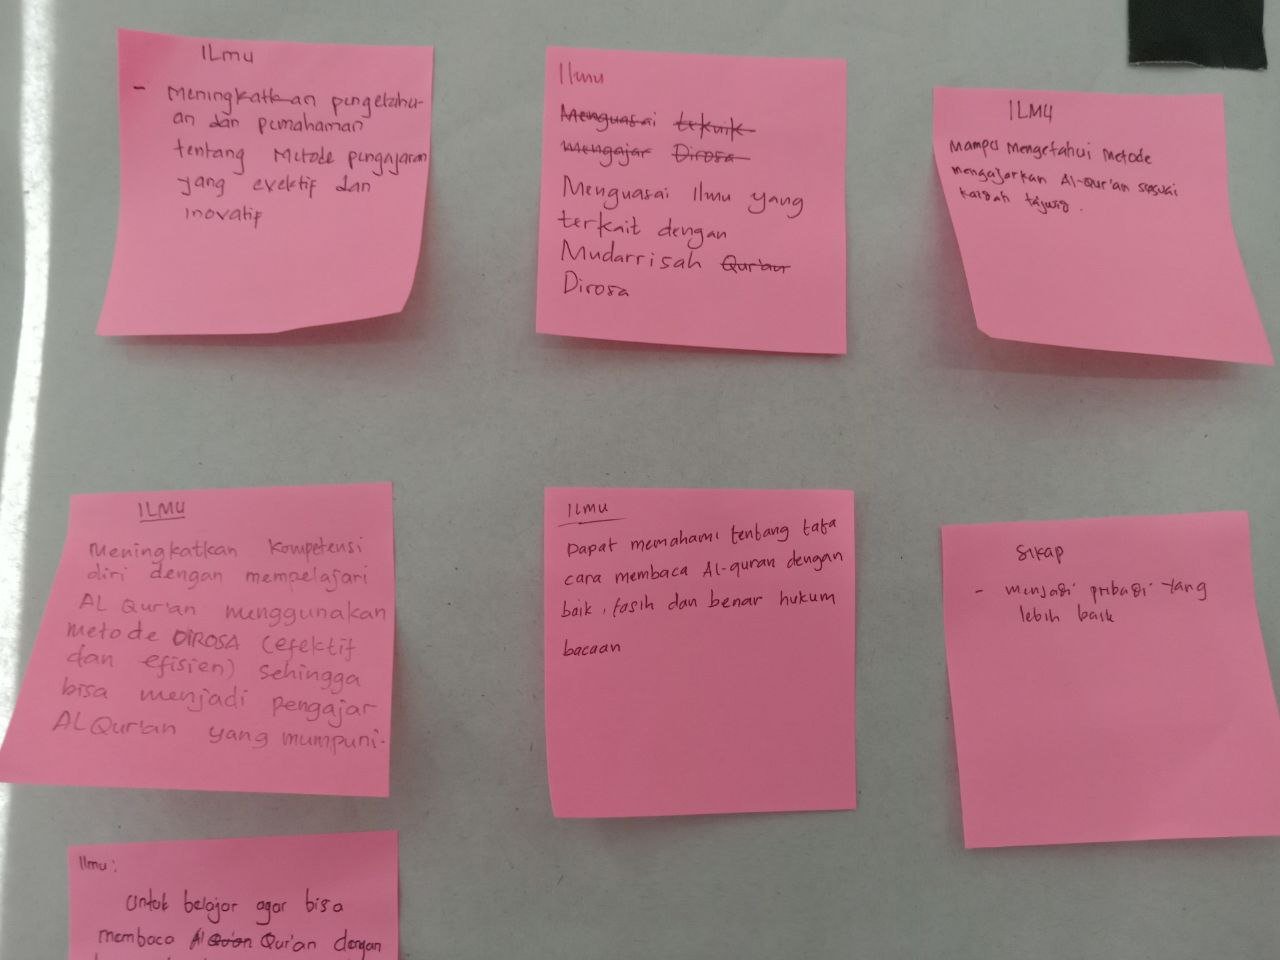 ILmu
- Meningkatkan pengetahu-
an dan pemahaman
tentang Metode pengajaran
yang evektif dan
inovatif
Ilmu
Menguasai teknik
mengajar Dirosa
Menguasai Ilmu yang
terkait dengan
Mudarrisah Qur'an
Dirosa
ILMU
Mampu Mengetahui Metode
mengajarkan Al-Qur'an sesuai
kaidah tajwid.
ILMU
Meningkatkan Kompetensi
diri dengan mempelajari
AL Qur'an menggunakan
metode DIROSA (efektif
dan efisien) sehingga
bisa menjadi pengajar
AL Qur'an yang mumpuni.
ILmu
Dapat memahami tentang tata
cara membaca Al-quran dengan
baik, fasih dan benar hukum
bacaan
Sikap
- menjadi pribadi yang
lebih baik
Ilmu:
Untuk belajar agar bisa
membaca Al Qur'an dengan